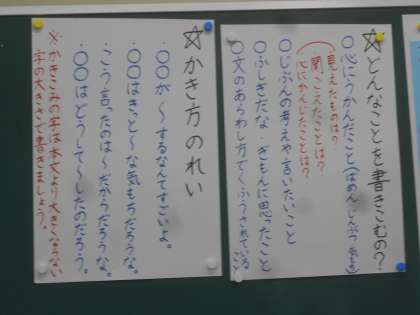 ☆どんなことを書きこむの?
○心にうかんだこと(ばめん・じんぶつ・気もち)
見えたものは?
聞こえたことは?
心にかんじたことは?
○じぶんの考えや言いたいこと
○ふしぎだな・ぎもんに思ったこと
○文のあらわし方でくふうされていること
☆かき方のれい
・○○が〜するなんてすごいよ。
・○○はきっと〜な気もちだろうな。
・こう言ったのは〜だからだろうな。
・○○はどうして〜したのだろう。
※かきこみの字は本文より大きくならない
字の大きさで書きましょう。